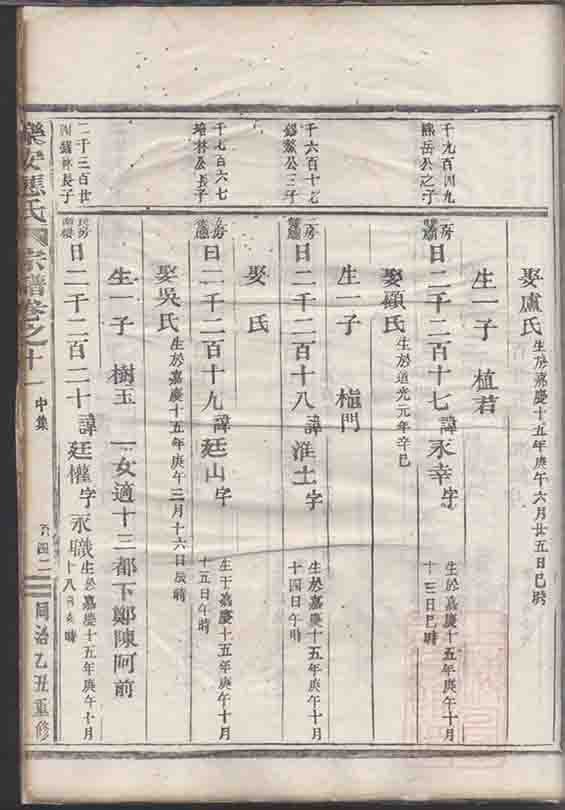 娶盧氏 生於嘉慶十五年庚午六月廿五日巳時
生一子 植君
千九百四九
熊岳公之子
日二千二百十七諱永幸字 生於嘉慶十五年庚午十月
十三日巳時
娶顧氏 生於道光元年辛巳
生一子 植門
千六百十七
公三子
日二千二百十八諱淮土字 生於嘉慶十五年庚午十月
十四日午時
娶 氏
千七百六七
培林公長子
日二千二百十九諱廷山字 生于嘉慶十五年庚午十月
十五日午時
娶吳氏 生於嘉慶十五年庚午三月十六日辰時
生一子 樹玉 一女適十三都下鄭陳阿前
二千三百廿
長子
日二千二百二十諱廷權字永職 生於嘉慶十五年庚午十月
十八日 時
樂安 氏 宗譜卷之十一 中集
百四二
同治乙丑重修